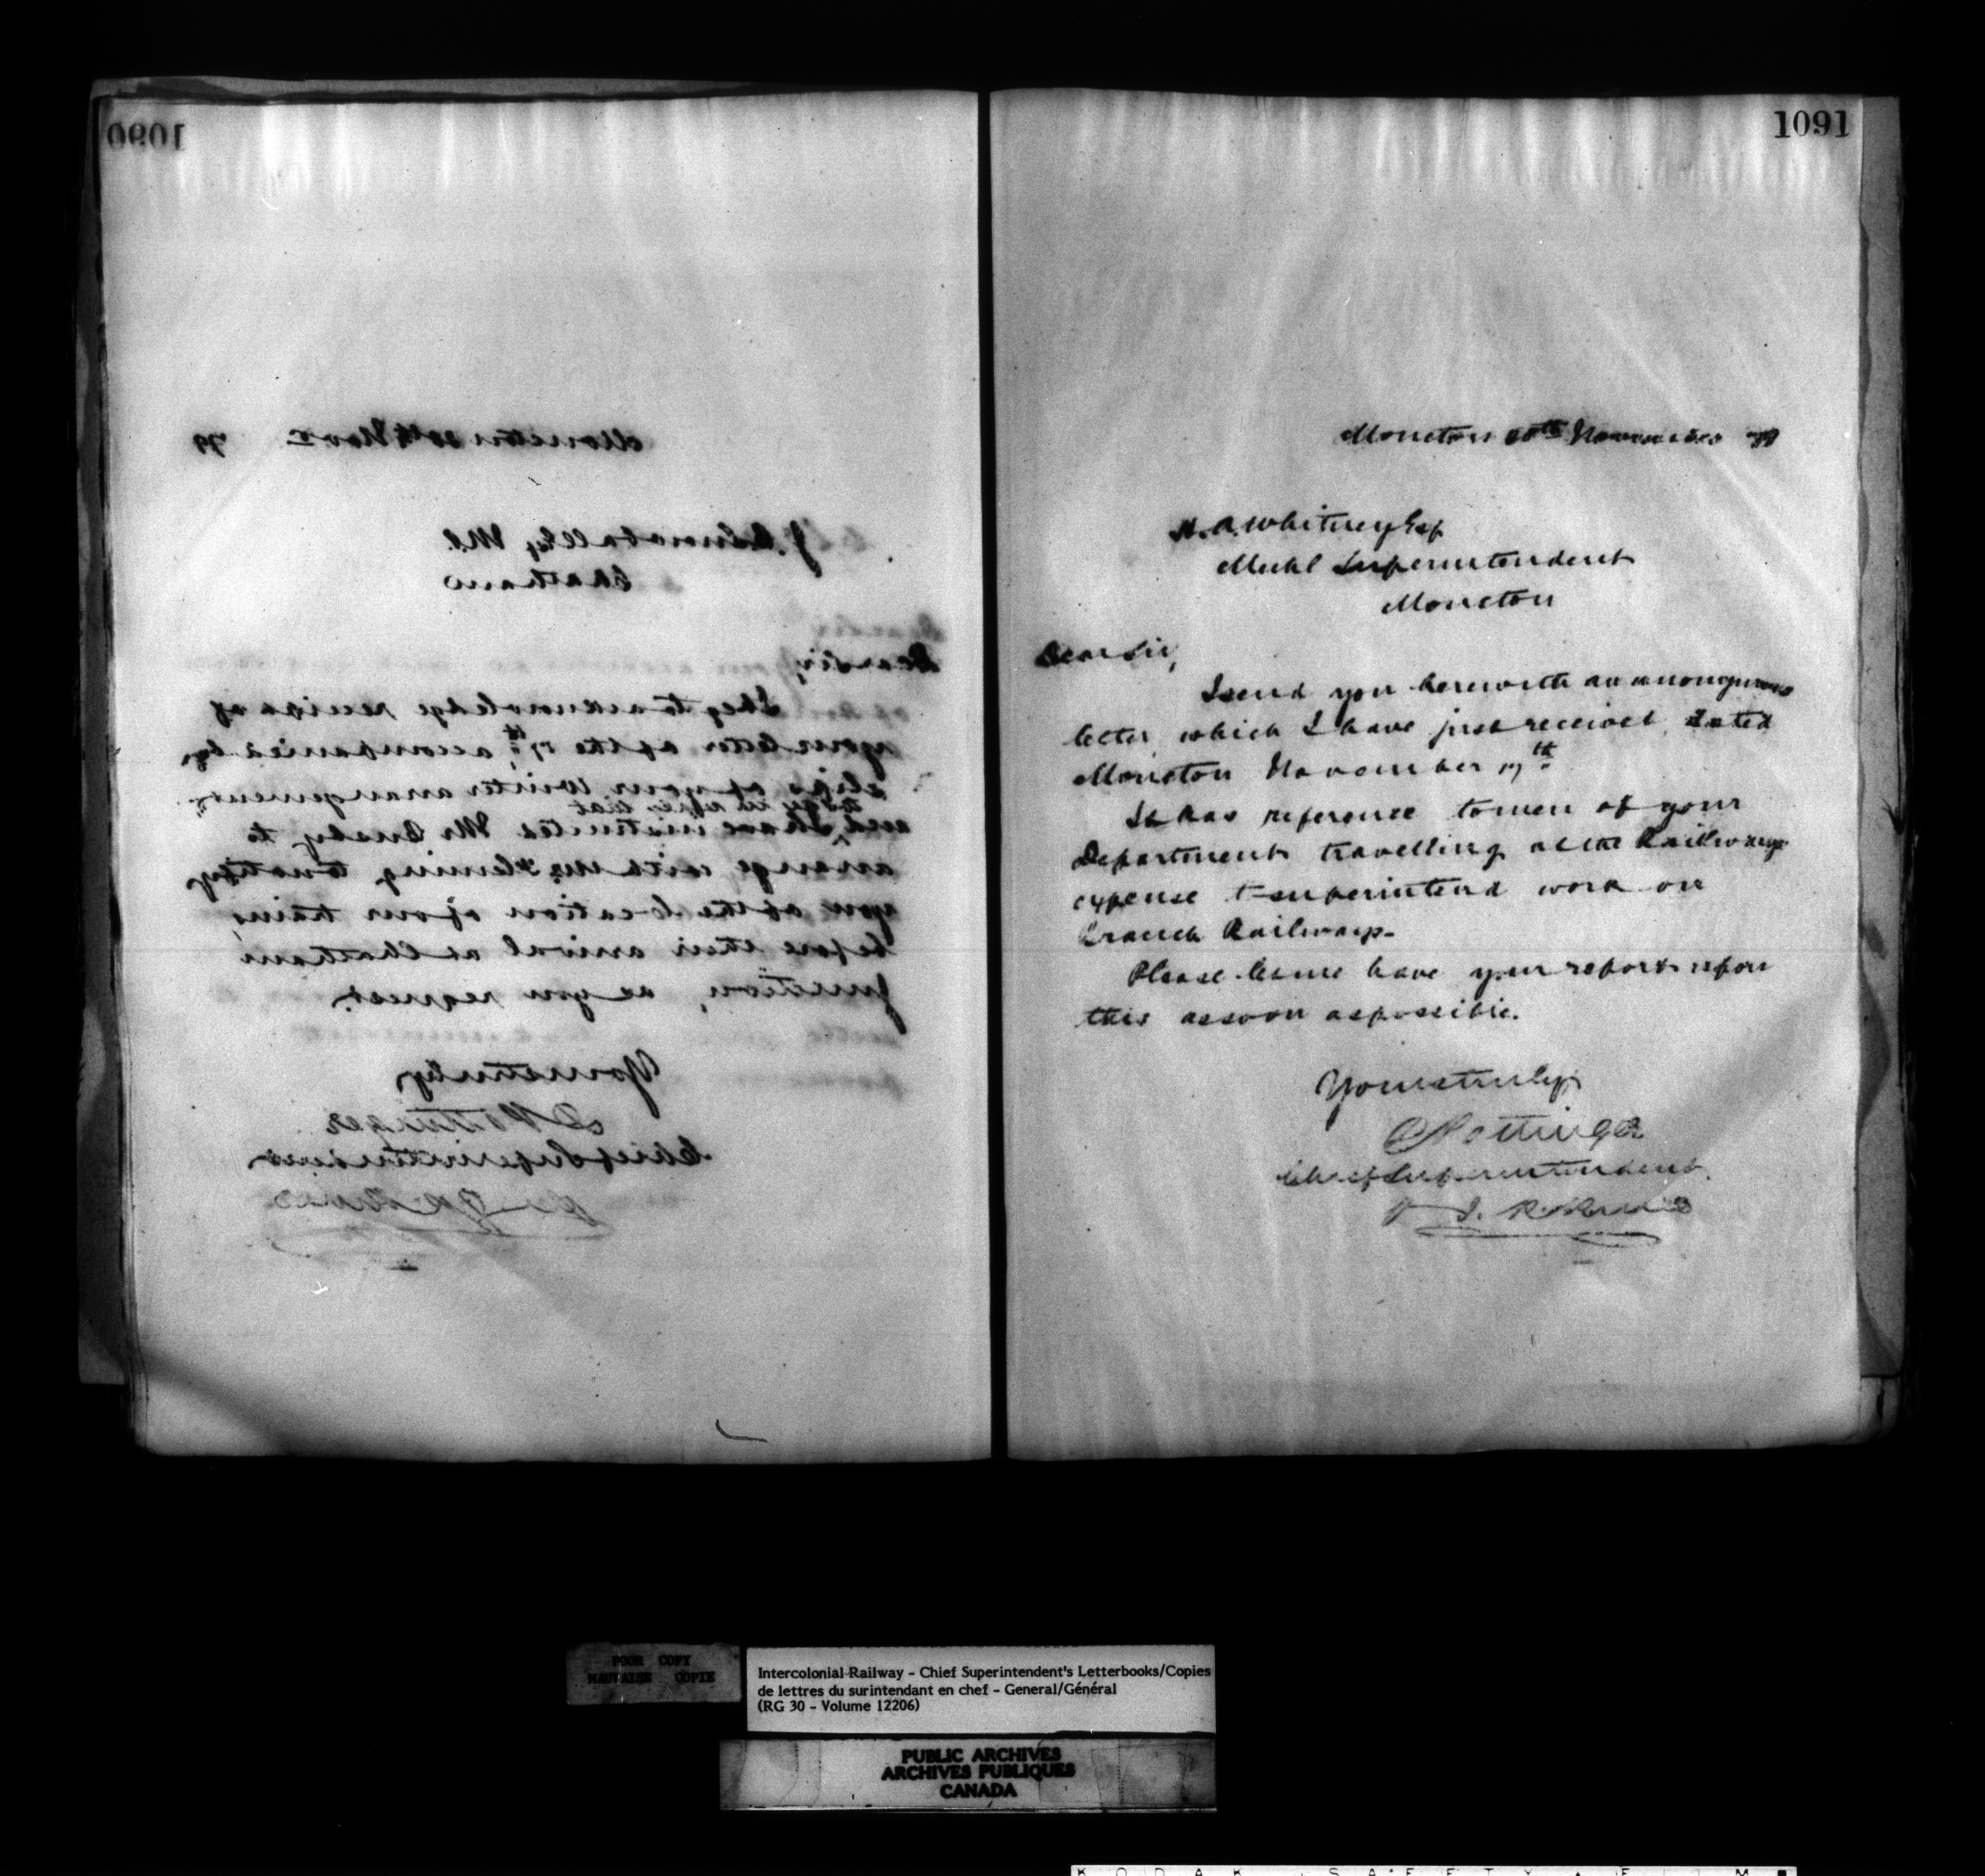 1090
Moncton 20th Nov. 79
J. B. Snowball Esq M.P.
Chatham
Dear Sir,
I beg to acknowledge receipt of
your letter of the 17th, accompanied by
slips of your Winter arrangement
to say in reply that
and I have instructed Mr Busby to
arrange with Mr Fleming to notify
you of the location of our trains
before their arrival at Chatham
Junction, as you request.
Yours truly
D Pottinger
Chief Superintendent
1091
Moncton 20th November 79
H. A. Whitney Esq
Mechl Superintendent
Moncton
Dear Sir,
I send you herewith an anonymous
letter which I have just received, dated
Moncton November 17th
It has reference to men of your
Department travelling at the Railways
expense to superintend work on
Branch Railways.
Please let me have your report upon
this as soon as possible.
Yours truly
D Pottinger
Chief Superintendent
POOR COPY
MAUVAISE COPIE
Intercolonial Railway - Chief Superintendent's Letterbooks/Copies
de lettres du surintendant en chef - General/Général
(RG 30 - Volume 12206)
PUBLIC ARCHIVES
ARCHIVES PUBLIQUES
CANADA